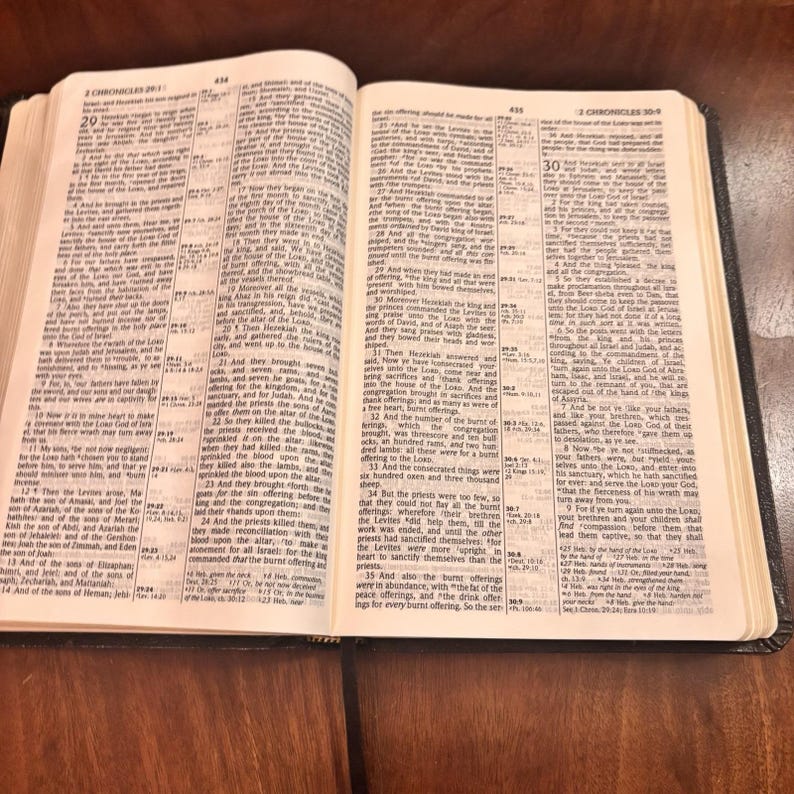 2 CHRONICLES 29:1
434
Israel: and Hezekiah his son reigned in
his stead.
29 Hezekiah began to reign when
he was five and twenty years
years in Jerusalem. And his mother's
name was Abijah, the daughter of
Zechariah.
2 And he did that which was right
in the sight of the LORD, according to
all that David his father had done.
3 He in the first year of his reign,
in the first month, opened the doors
of the house of the LORD, and repaired
them.
4 And he brought in the priests and
the Levites, and gathered them together
into the east street,
5 And said unto them, Hear me, ye
Levites, sanctify now yourselves, and
sanctify the house of the LORD God
of your fathers, and carry forth the filthiness
out of the holy place.
6 For our fathers have trespassed,
and done that which was evil in the
eyes of the LORD our God, and have
forsaken him, and have turned away
their faces from the habitation of the
LORD, and turned their backs.
7 Also they have shut up the doors
of the porch, and put out the lamps,
and have not burned incense nor of-
fered burnt offerings in the holy place
unto the God of Israel.
8 Wherefore the wrath of the LORD
was upon Judah and Jerusalem, and he
hath delivered them to trouble, to as-
tonishment, and to hissing, as ye see
with your eyes.
9 For, lo, our fathers have fallen by
the sword, and our sons and our daugh-
ters and our wives are in captivity for
this.
10 Now it is in mine heart to make
a covenant with the LORD God of Isra-
el, that his fierce wrath may turn away
from us.
11 My sons, be not now negligent:
for the LORD hath chosen you to stand
before him, to serve him, and that ye
should minister unto him, and burn
incense.
12 ¶ Then the Levites arose, Ma-
hath the son of Amasai, and Joel the son
of Azariah, of the sons of the Ko-
hathites: and of the sons of Merari;
Kish the son of Abdi, and Azariah the
son of Jehalelel: and of the Gershon-
ites; Joah the son of Zimmah, and Eden
the son of Joah:
13 And of the sons of Elizaphan;
Shimri, and Jeiel: and of the sons of
Asaph; Zechariah, and Mattaniah:
14 And of the sons of Heman; Jehi-
el, and Shimei: and of the sons of
thun; Shemaiah, and Uzziel.
15 And they gathered their
ren, and sanctified themselves,
came, according to the commandment
of the king, by the words of the
to cleanse the house of the LORD.
16 And the priests went into the
ner part of the house of the LORD, to
cleanse it, and brought out all the
cleanness that they found in the temple
of the LORD into the court of the house
of the LORD. And the Levites took
it, to carry it out abroad into the
17 Now they began on the first day
of the first month to sanctify, and on
the eighth day of the month came they to
the porch of the LORD: so they sanc-
tified the house of the LORD in eight
days; and in the sixteenth day of the first
month they made an end.
18 Then they went in to Hezekiah
the king, and said, We have cleansed
all the house of the LORD, and the altar
of burnt offering, with all the vessels
thereof, and the shewbread table, with all
the vessels thereof.
19 Moreover all the vessels, which
king Ahaz in his reign did cast away
in his transgression, have we prepared
and sanctified, and, behold, they are
before the altar of the LORD.
20 ¶ Then Hezekiah the king rose
early, and gathered the rulers of the
city, and went up to the house of the LORD.
21 And they brought seven bul-
locks, and seven rams, and seven
lambs, and seven he goats, for a sin
offering for the kingdom, and for the
sanctuary, and for Judah. And he com-
manded the priests the sons of Aaron
to offer them on the altar of the LORD.
22 So they killed the bullocks, and
the priests received the blood, and
sprinkled it on the altar: likewise,
when they had killed the rams, they
sprinkled the blood upon the altar:
they killed also the lambs, and they
sprinkled the blood upon the altar.
23 And they brought forth the he
goats for the sin offering before the
king and the congregation; and they
laid their hands upon them:
24 And the priests killed them, and
they made reconciliation with their
blood upon the altar, to make an
atonement for all Israel: for the king
commanded that the burnt offering and
6 Heb. given the neck
8 Heb. commotion, Deut. 28:25
11 Or, be not now deceived
11 Or, offer sacrifice
15 Or, in the business of the LORD, ch. 30:12
23 Heb. near
435
2 CHRONICLES 30:9
the sin offering should be made for all
Israel.
25 And he set the Levites in the
house of the LORD with cymbals, with
psalteries, and with harps, according
to the commandment of David, and of
Gad the king's seer, and Nathan the
prophet: for so was the command-
ment of the LORD by his prophets.
26 And the Levites stood with the
instruments of David, and the priests
with the trumpets.
27 And Hezekiah commanded to of-
fer the burnt offering upon the altar.
And when the burnt offering began,
the song of the LORD began also with
the trumpets, and with the instru-
ments ordained by David king of Israel.
28 And all the congregation wor-
shiped, and the singers sang, and the
trumpeters sounded: and all this con-
tinued until the burnt offering was fin-
ished.
29 And when they had made an end
of offering, the king and all that were
present with him bowed themselves,
and worshiped.
30 Moreover Hezekiah the king and
the princes commanded the Levites to
sing praise unto the LORD with the
words of David, and of Asaph the seer.
And they sang praises with gladness,
and they bowed their heads and wor-
shiped.
31 Then Hezekiah answered and
said, Now ye have consecrated your-
selves unto the LORD, come near and
bring sacrifices and thank offerings
into the house of the LORD. And the
congregation brought in sacrifices and
thank offerings; and as many as were of
a free heart, burnt offerings.
32 And the number of the burnt of-
ferings, which the congregation
brought, was threescore and ten bull-
ocks, an hundred rams, and two hun-
dred lambs: all these were for a burnt
offering to the LORD.
33 And the consecrated things were
six hundred oxen and three thousand
sheep.
34 But the priests were too few, so
that they could not flay all the burnt
offerings: wherefore their brethren
the Levites did help them, till the
work was ended, and until the other
priests had sanctified themselves: for
the Levites were more upright in
heart to sanctify themselves than the
priests.
35 And also the burnt offerings
were in abundance, with the fat of the
peace offerings, and the drink offer-
ings for every burnt offering. So the ser-
vice of the house of the LORD was set in
order.
36 And Hezekiah rejoiced, and all
the people, that God had prepared the
people: for the thing was done sudden-
ly.
30 And Hezekiah sent to all Israel
and Judah, and wrote letters
also to Ephraim and Manasseh, that
they should come to the house of the
LORD at Jerusalem, to keep the pass-
over unto the LORD God of Israel.
2 For the king had taken counsel,
and his princes, and all the congrega-
tion in Jerusalem, to keep the passover
in the second month.
3 For they could not keep it at that
time, because the priests had not
sanctified themselves sufficiently, nei-
ther had the people gathered them-
selves together to Jerusalem.
4 And the thing pleased the king
and all the congregation.
5 So they established a decree to
make proclamation throughout all Isra-
el, from Beer-sheba even to Dan, that
they should come to keep the passover
unto the LORD God of Israel at Jerusa-
lem: for they had not done it of a long
time in such sort as it was written.
6 So the posts went with the letters
from the king and his princes
throughout all Israel and Judah, and ac-
cording to the commandment of the
king, saying, Ye children of Israel,
turn again unto the LORD God of Abra-
ham, Isaac, and Israel, and he will re-
turn to the remnant of you, that are
escaped out of the hand of the kings
of Assyria.
7 And be not ye like your fathers,
and like your brethren, which tres-
passed against the LORD God of their
fathers, who therefore gave them up
to desolation, as ye see.
8 Now be ye not stiffnecked, as
your fathers were, but yield your-
selves unto the LORD, and enter into
his sanctuary, which he hath sanctified
for ever: and serve the LORD your God,
that the fierceness of his wrath may
turn away from you.
9 For if ye turn again unto the LORD,
your brethren and your children shall
find compassion before them that
lead them captive, so that they shall
25 Heb. by the hand of the LORD
25 Heb. by the hand of
27 Heb. in the time
27 Heb. hands of instruments
28 Heb. song
29 Heb. found
31 Or, filled your hand, ch. 13:9
34 Heb. strengthened them
4 Heb. was right in the eyes of the king
6 Heb. from the hand
8 Heb. harden not your necks
8 Heb. give the hand: See 1 Chron. 29:24; Ezra 10:19